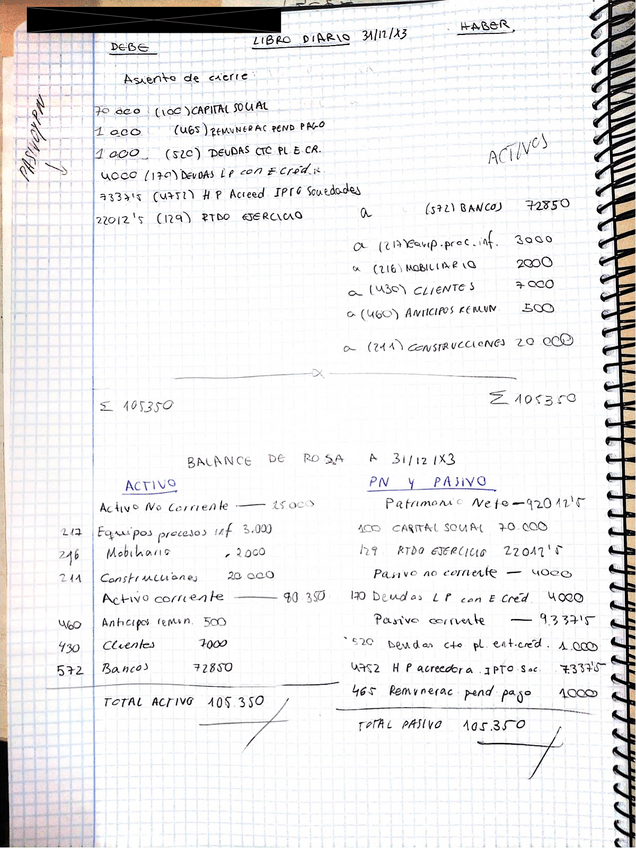 DEBE LIBRO DIARIO 31/12/X3 HABER
Asiento de cierre:
PASIVO+PN
70 000 (100) CAPITAL SOCIAL
1 000 (465) REMUNERAC PEND PAGO
1 000 (520) DEUDAS CTC PL E. CR.
ACTIVOS
4000 (170) DEUDAS LP con E Créd.
7337'5 (4752) H P Acreed IPTO Sociedades
22012'5 (129) RTDO EJERCICIO
a (572) BANCOS 72850
a (217) Equip. proc. inf. 3000
a (216) MOBILIARIO 2000
a (430) CLIENTES 7000
a (460) ANTICIPOS REMUN 500
a (211) CONSTRUCCIONES 20 000
Σ 105350 Σ 105350
BALANCE DE ROSA A 31/12/X3
ACTIVO PN Y PASIVO
Activo No Corriente — 25000 Patrimonio Neto — 92012'5
217 Equipos procesos inf 3.000 100 CAPITAL SOCIAL 70.000
216 Mobiliario 2000 129 RTDO EJERCICIO 22012'5
211 Construcciones 20 000 Pasivo no corriente — 4000
Activo corriente — 80.350 170 Deudas LP con E Créd. 4000
460 Anticipos remun. 500 Pasivo corriente — 9.337'5
430 Clientes 7000 520 Deudas cto pl ent. créd. 1.000
572 Bancos 72850 4752 H P acreedora IPTO Soc. 7337'5
465 Remunerac pend pago 1000
TOTAL ACTIVO 105.350
TOTAL PASIVO 105.350